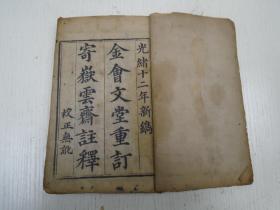 光緒十二年新鐫
金會文堂重訂
寄嶽雲齋註釋
校正無訛